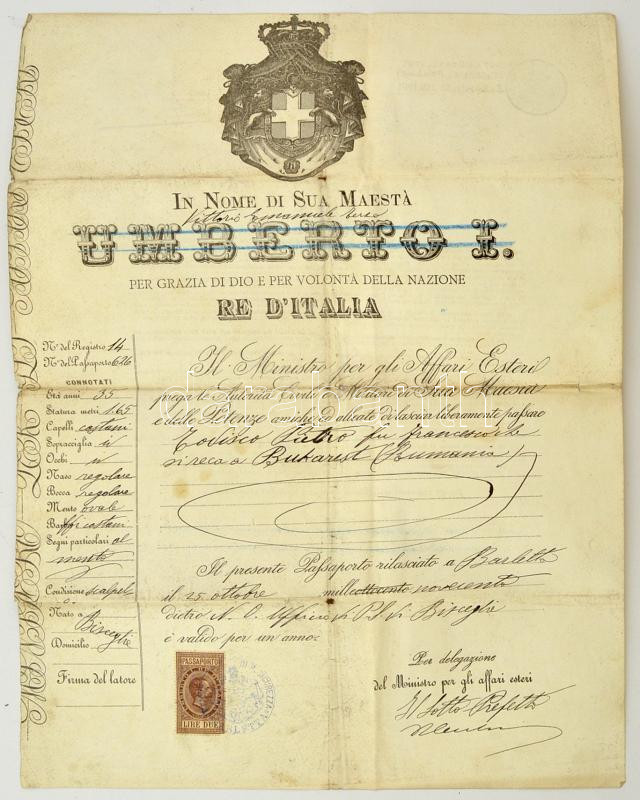 IN NOME DI SUA MAESTÀ
Vittorio Emanuele Terzo
UMBERTO I.
PER GRAZIA DI DIO E PER VOLONTÀ DELLA NAZIONE
RE D'ITALIA
No del Registro 14
No del Passaporto 626
CONNOTATI
Età anni 35
Statura metri 1.65
Capelli castani
Sopracciglia id
Occhi id
Naso regolare
Bocca regolare
Mento ovale
Baffi castani
Segni particolari al
mento
Condizione scalpel
Nato a
Bisceglie
Domicilio
Firma del latore
Il Ministro per gli Affari Esteri
prega le Autorità Civili e Militari di Sua Maestà
e delle Potenze amiche ed alleate di lasciar liberamente passare
Todisco Pietro fu Francesco che
si reca a Bukarest (Rumania)
Il presente Passaporto rilasciato a Barletta
il 25 ottobre milleottocento novecento
dietro N. O. Ufficio di P.S. di Bisceglie
è valido per un anno:
PASSAPORTO
LIRE DUE
Per delegazione
del Ministro per gli affari esteri
Il Sotto Prefetto